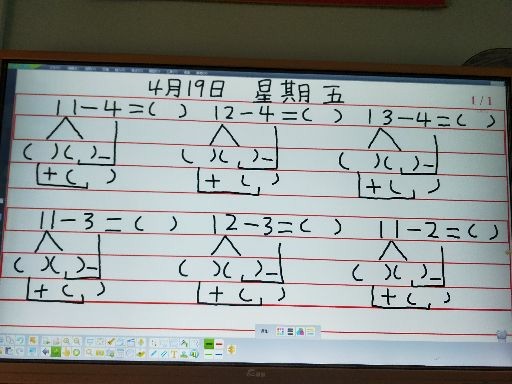 4月19日 星期五
1/1
11-4=( ) 12-4=( ) 13-4=( )
( )( )- ( )( )- ( )( )-
+( ) +( ) +( )
11-3=( ) 12-3=( ) 11-2=( )
( )( )- ( )( )- ( )( )-
+( ) +( ) +( )